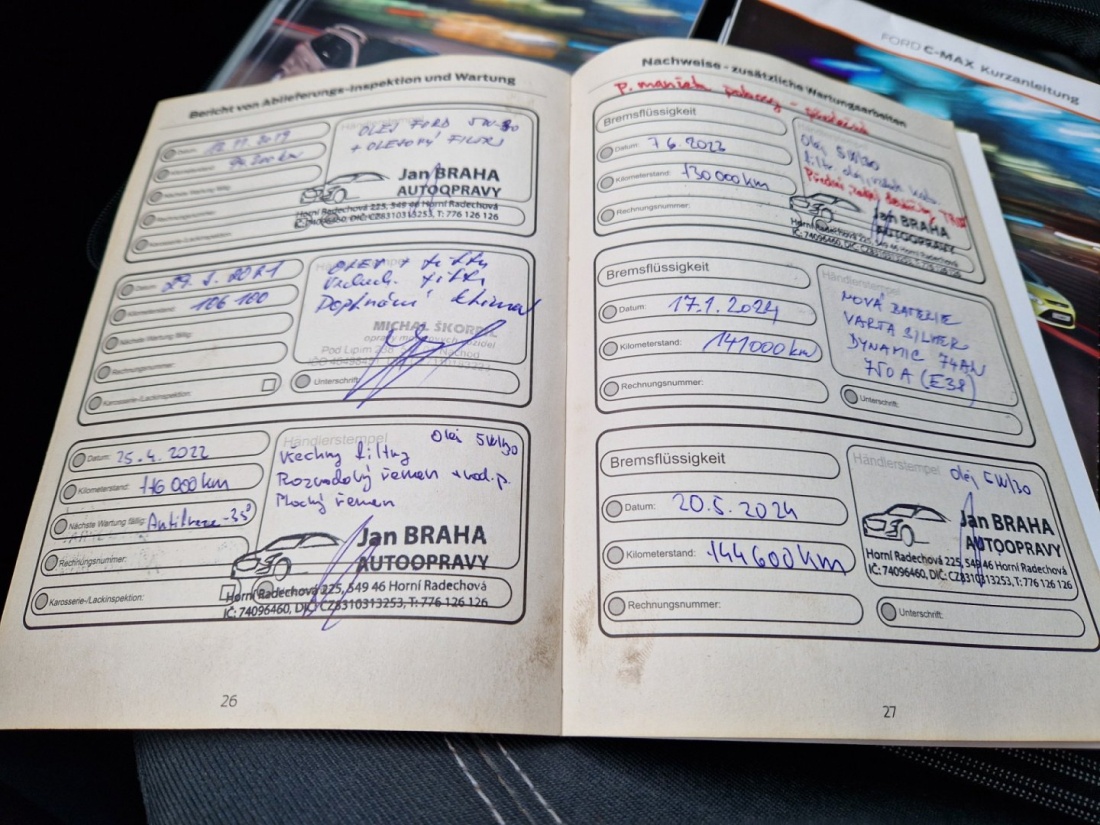 FORD C-MAX Kurzanleitung
Bericht von Ablieferungs-Inspektion und Wartung
Datum: 12.11.2019
OLEJ FORD 5W-30
+ OLEJOVÝ FILTR
Jan BRAHA
AUTOOPRAVY
Horní Radechová 225, 549 46 Horní Radechová
IČ: 74096460, DIČ: CZ8310313253, T: 776 126 126
Datum:
Kilometerstand: 106 100
Nächste Wartung fällig:
Rechnungsnummer:
Karosserie-/Lackinspektion:
OLEJ + filtr
Vzduch. filtr
Doplnění klima
MICHAL ŠKOP
Pod Lipím
Náchod
Unterschrift:
Datum: 25.4. 2022
Kilometerstand: 116 000 km
Nächste Wartung fällig: Antifreeze -35°
Rechnungsnummer:
Karosserie-/Lackinspektion:
Händlerstempel
Olej 5W/30
Všechny filtry
Rozvodový řemen + vod. p.
Plochý řemen
Jan BRAHA
AUTOOPRAVY
Horní Radechová 225, 549 46 Horní Radechová
IČ: 74096460, DIČ: CZ8310313253, T: 776 126 126
26
Nachweise - zusätzliche Wartungsarbeiten
Bremsflüssigkeit
Datum: 7 6. 2023
Kilometerstand: 130 000 km
Rechnungsnummer:
Olej 5W/30
Jan BRAHA
AUTOOPRAVY
Horní Radechová 225, 549 46 Horní Radechová
IČ: 74096460, DIČ: CZ8310313253, T: 776 126 126
Bremsflüssigkeit
Datum: 17.1. 2024
Kilometerstand: 141000 km
Rechnungsnummer:
Händlerstempel
NOVÁ BATERIE
VARTA SILVER
DYNAMIC 74AH
750 A (E38)
Unterschrift:
Bremsflüssigkeit
Datum: 20.5. 2024
Kilometerstand: 144600 km
Rechnungsnummer:
Händlerstempel
Olej 5W/30
Jan BRAHA
AUTOOPRAVY
Horní Radechová 225, 549 46 Horní Radechová
IČ: 74096460, DIČ: CZ8310313253, T: 776 126 126
Unterschrift:
27